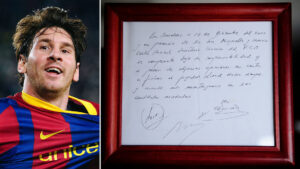 unicef
En Barcelona, a 14 de Diciembre del 2000
y en presencia de los Srs Minguella y Horacio
Carles Rexach Secretario técnico del F.C.B
se compromete bajo su responsabilidad y
a pesar de algunas opiniones en contra
a fichar al jugador Lionel Messi siempre
y cuando nos mantengamos en las
cantidades acordadas